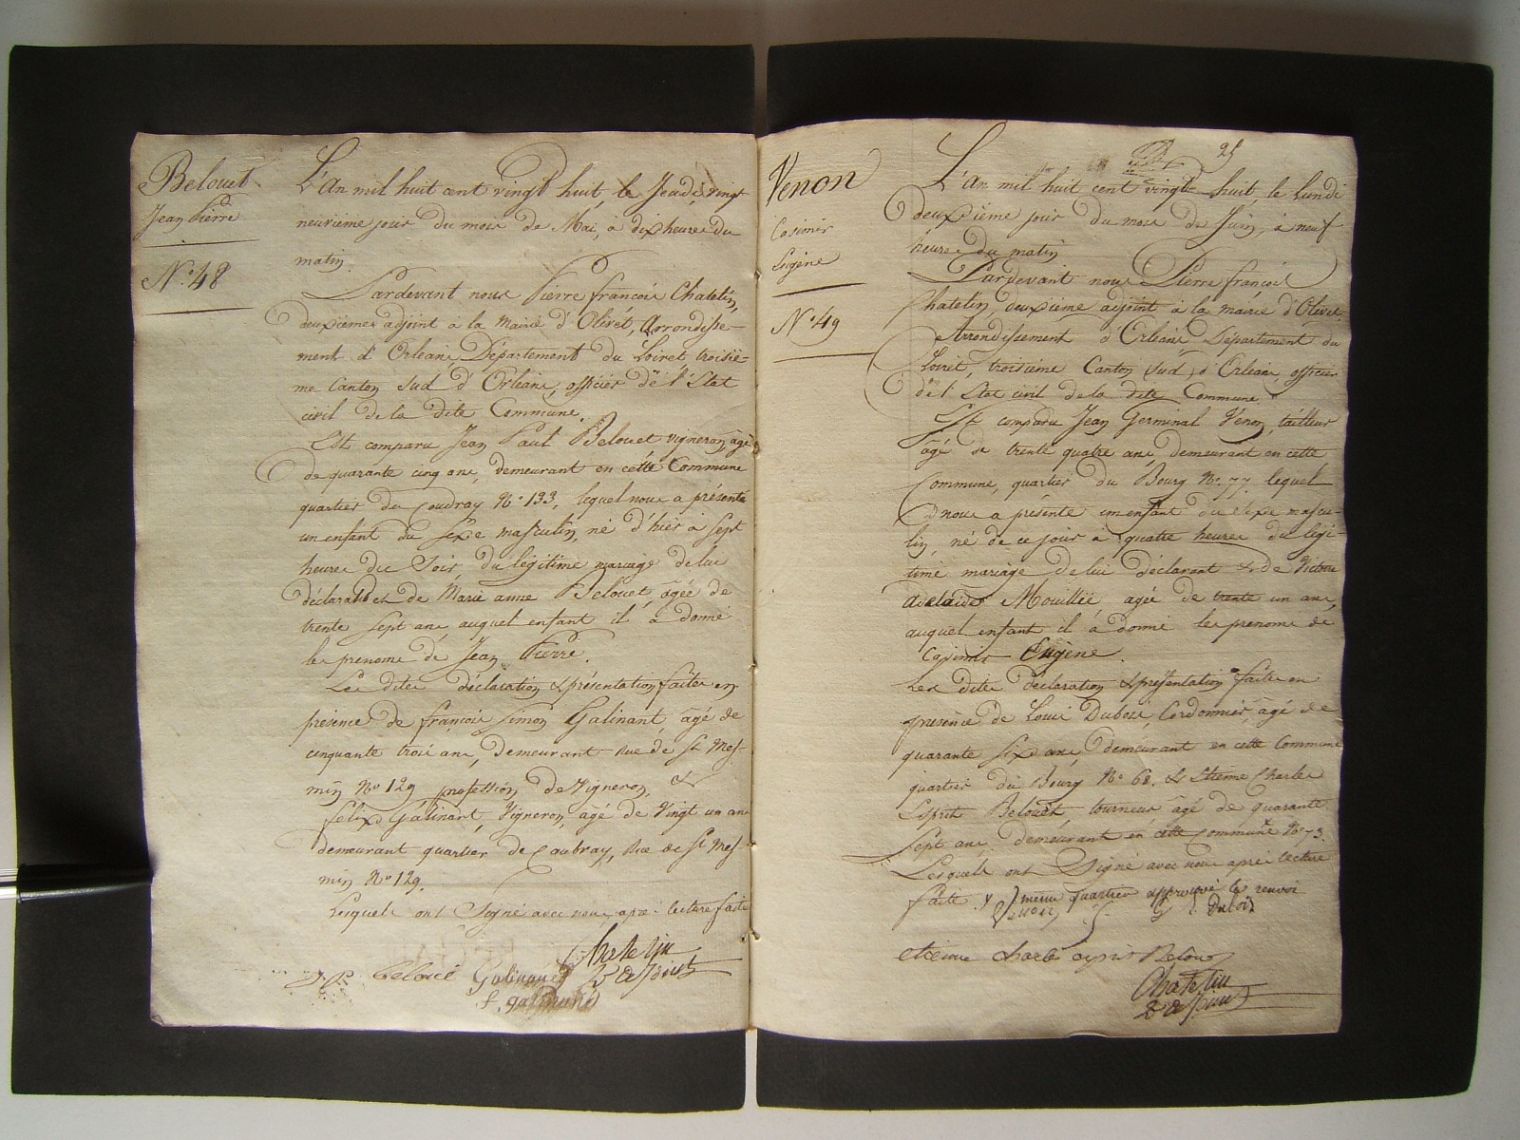 Belouet
Jean Pierre
N.o 48
L'An mil huit cent vingt huit, le Jeudi vingt
neuvième jour du mois de Mai, à dix heures du
matin.
Pardevant nous Pierre françois Chatelin,
deuxième adjoint à la Mairie d'Olivet, Arrondisse-
ment d'Orléans Département du Loiret troisiè-
me Canton Sud d'Orléans, officier de l'Etat
civil de la dite Commune.
Est comparu Jean Paul Belouet vigneron, âgé
de quarante cinq ans, demeurant en cette Commune
quartier du Coudray N.o 133, lequel nous a présenté
un enfant du sexe masculin, né d'hier à sept
heures du Soir du légitime mariage de lui
déclarant et de Marie anne Belouet, âgée de
trente sept ans auquel enfant il a donné
les prénoms de Jean Pierre.
Les dites déclaration & présentation faites en
présence de françois Simon Galinant, âgé de
cinquante trois ans, demeurant rue de St Mes-
min No 129 profession de Vigneron, &
felix Galinant, Vigneron, âgé de Vingt un ans
demeurant quartier de Caubray, rue de St Mes-
min No 129.
Lesquels ont Signé avec nous, après lecture faite
Chatelin
J. P. belouet Galinand 2e adjoint
f. galinand
25
Venon
Casimir
Eugène
N.o 49
L'An mil huit cent vingt huit, le Lundi
deuxième jour du mois de Juin, à neuf
heures du matin
Pardevant nous Pierre françois
Chatelin, deuxième adjoint à la mairie d'Olivet,
Arrondissement d'Orléans, Département du
Loiret, troisième Canton Sud d'Orléans officier
de l'Etat civil de la dite Commune
Est comparu Jean Germinal Venon, tailleur
âgé de trente quatre ans, demeurant en cette
Commune, quartier du Bourg No. 77. lequel
nous a présenté un enfant du sexe mascu-
lin, né de ce jour à quatre heures du légi-
time mariage de lui déclarant & de Victoire
adelaide Mouillié agée de trente un ans,
auquel enfant il a donné les prénoms de
Casimir Eugène.
Les dites déclaration & présentation faites en
présence de Louis Dubois Cordonnier, âgé de
quarante six ans, demeurant en cette Commune
quartier du Bourg No 68. & Etienne Charles
Esprit Belouet, tourneur âgé de quarante
Sept ans demeurant en cette Commune No 73.
Lesquels ont Signé avec nous après lecture
faite. même quartier approuvé le renvoi
Venon Dubois
etienne charle esprit Belouet
Chatelin
2e adjoint